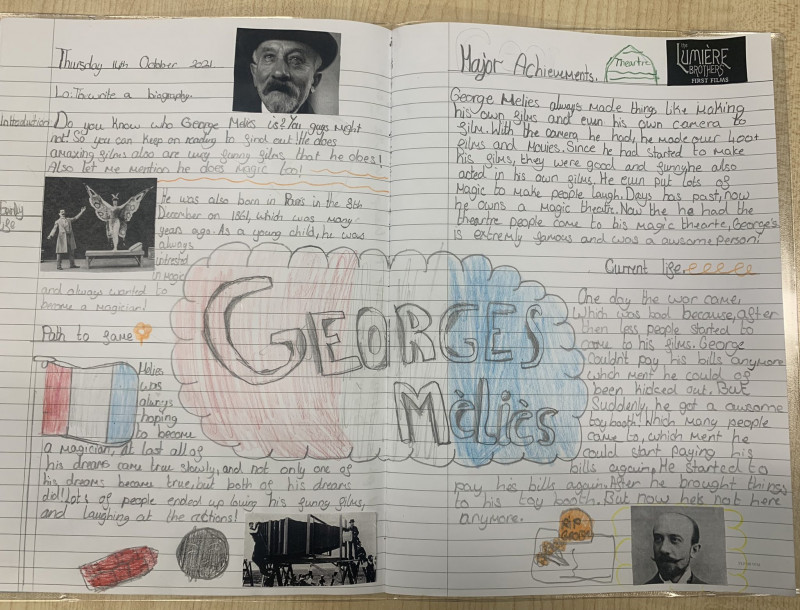 Thursday 14th October 2021
Lo: To write a biography.
Introduction
Do you know who George Melies is? You guys might
not! So you can keep on reading to find out! He does
amazing films also are very funny films, that he does!
Also let me mention he does magic too!
Early
life
He was also born in Paris in the 8th
December on 1861, which was many
years ago. As a young child, he was
always
intrested
in magic
and always wanted to
become a magician!
Path to fame
Melies
was
always
hoping
to become
a magician, at last all of
his dreams came true slowly, and not only one of
his dreams became true, but both of his dreams
did! Lots of people ended up loving his funny films,
and laughing at the actions!
GEORGES
Mèliès
Major Achievements.
Theatre
the
LUMIÈRE
BROTHERS
FIRST FILMS
George Melies always made things like making
his own films and even his own camera to
film. With the camera he had, he made our 400+
films and Movies. Since he had started to make
his films, they were good and funny he also
acted in his own films. He even put lots of
magic to make people laugh. Days has past, now
he owns a magic theatre. Now the he had the
theartre people come to his magic thearte, George's
is extremly famous and was a awsome person!
Current life.
One day the war came,
which was bad because, after
then less people started to
come to his films. George
couldn't pay his bills anymore
which ment he could of
been kidced out. But
Suddenly, he got a awsome
toy booth. Which many people
came to, which ment he
could start paying his
bills again. He started to
pay his bills again. After he brought things
to his toy booth. But now he's not here
anymore.